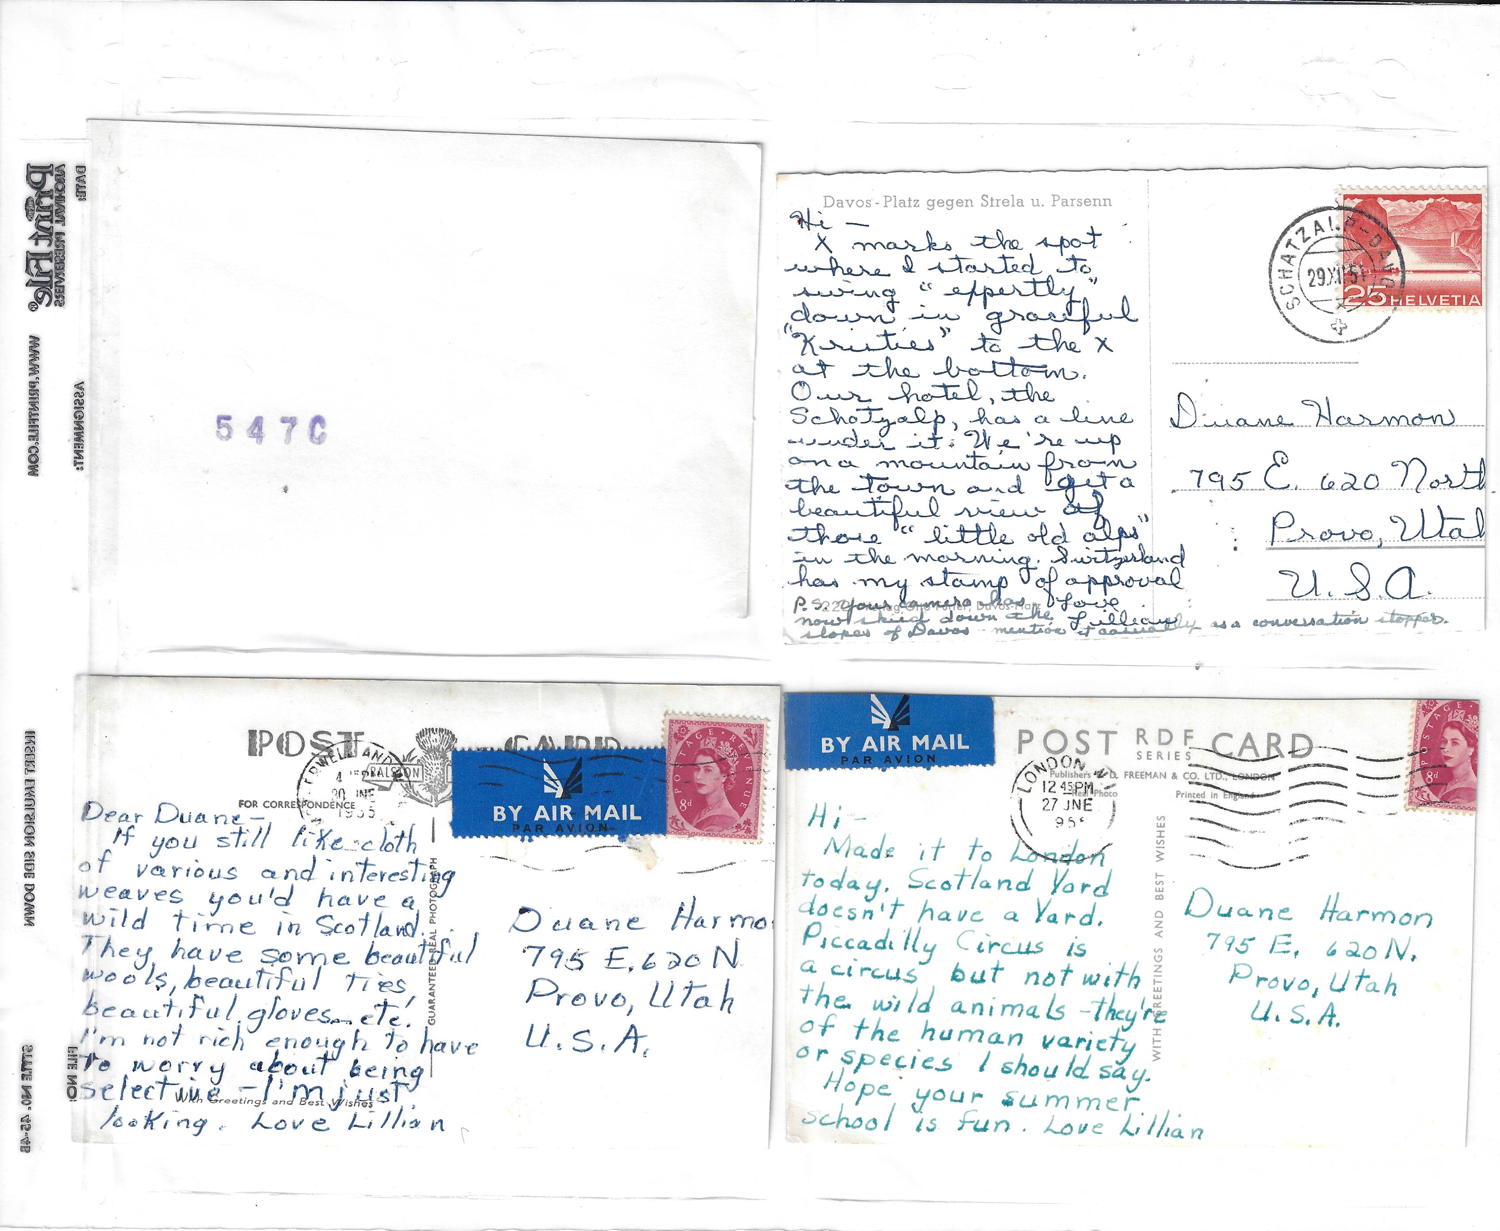 DATE:
Print File®
ARCHIVAL PRESERVERS
WWW.PRINTFILE.COM
ASSIGNMENT:
INSERT EMULSION SIDE DOWN
STYLE NO. 45-4B
FILE NO:
547C
Davos-Platz gegen Strela u. Parsenn
Hi —
X marks the spot
where I started to
swing "eppertly"
down in graceful
"Kristies" to the X
at the bottom.
Our hotel, the
Schatzalp, has a line
under it. We're up
on a mountain from
the town and get a
beautiful view of
those "little old alps"
in the morning. Switzerland
has my stamp of approval
Love
Lillian
P.S. Your camera has
now skied down the
slopes of Davos - mention it casually as a conversation stopper.
SCHATZALP-DAVOS
29.XII.51
25 HELVETIA
Duane Harmon
795 E. 620 North
Provo, Utah
U.S.A.
POST CARD
BALSTON
FOR CORRESPONDENCE
4
20 JNE
1955
BY AIR MAIL
PAR AVION
POSTAGE REVENUE
8d
Dear Duane—
If you still like cloth
of various and interesting
weaves you'd have a
wild time in Scotland.
They have some beautiful
wools, beautiful ties,
beautiful gloves, etc.
I'm not rich enough to have
to worry about being
selective - I'm just
looking. Love Lillian
With Greetings and Best Wishes
GUARANTEED REAL PHOTOGRAPH
Duane Harmo
795 E. 620 N
Provo, Utah
U.S.A.
BY AIR MAIL
PAR AVION
POST RDF CARD
SERIES
Publishers D. FREEMAN & CO. LTD., LONDON
Real Photo
Printed in England
LONDON
12 45 PM
27 JNE
POSTAGE REVENUE
8d
Hi—
Made it to London
today. Scotland Yard
doesn't have a Yard.
Piccadilly Circus is
a circus but not with
the wild animals - they're
of the human variety
or species I should say.
Hope your summer
school is fun. Love Lillian
WITH GREETINGS AND BEST WISHES
Duane Harmon
795 E. 620 N.
Provo, Utah
U.S.A.